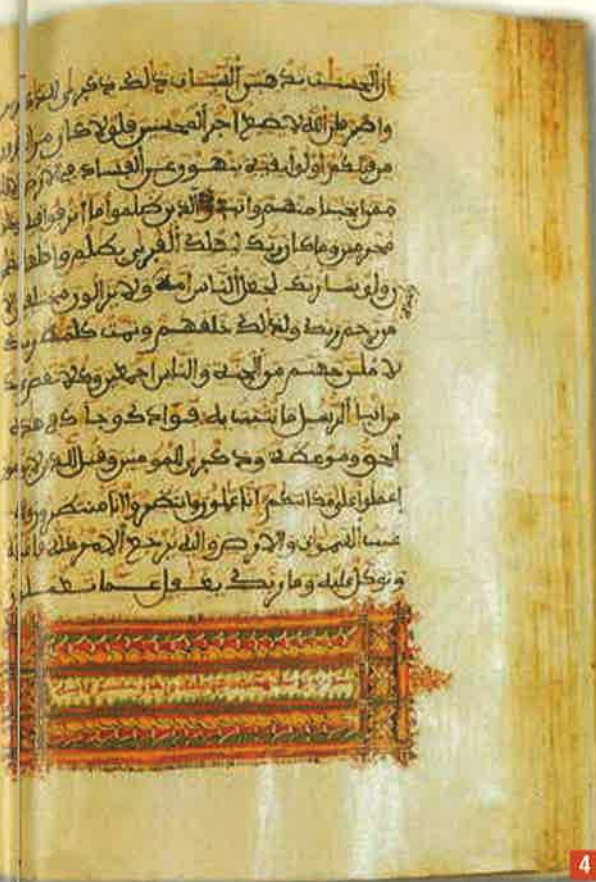 إن الحسنت يذهبن السيئات ذلك ذكرى
واصبر فإن الله لا يضيع أجر المحسنين فلولا كان من
من قبلكم أولوا بقية ينهون عن الفساد في الارض
ممن أنجينا منهم واتبع الذين ظلموا ما أترفوا فيه
مجرمين وما كان ربك ليهلك القرى بظلم وأهلها
ولو شاء ربك لجعل الناس أمة ولا يزالون مختلفين
من رحم ربك ولذلك خلقهم وتمت كلمة ربك
لأملأن جهنم من الجنة والناس أجمعين وكلا نقص
من أنباء الرسل ما نثبت به فؤادك وجاءك في هذه
الحق وموعظة وذكرى للمؤمنين وقل للذين لا
اعملوا على مكانتكم إنا عملون وانتظروا إنا منتظرون
غيب السموات والارض وإليه يرجع الامر كله
وتوكل عليه وما ربك بغفل عما تعملون
4